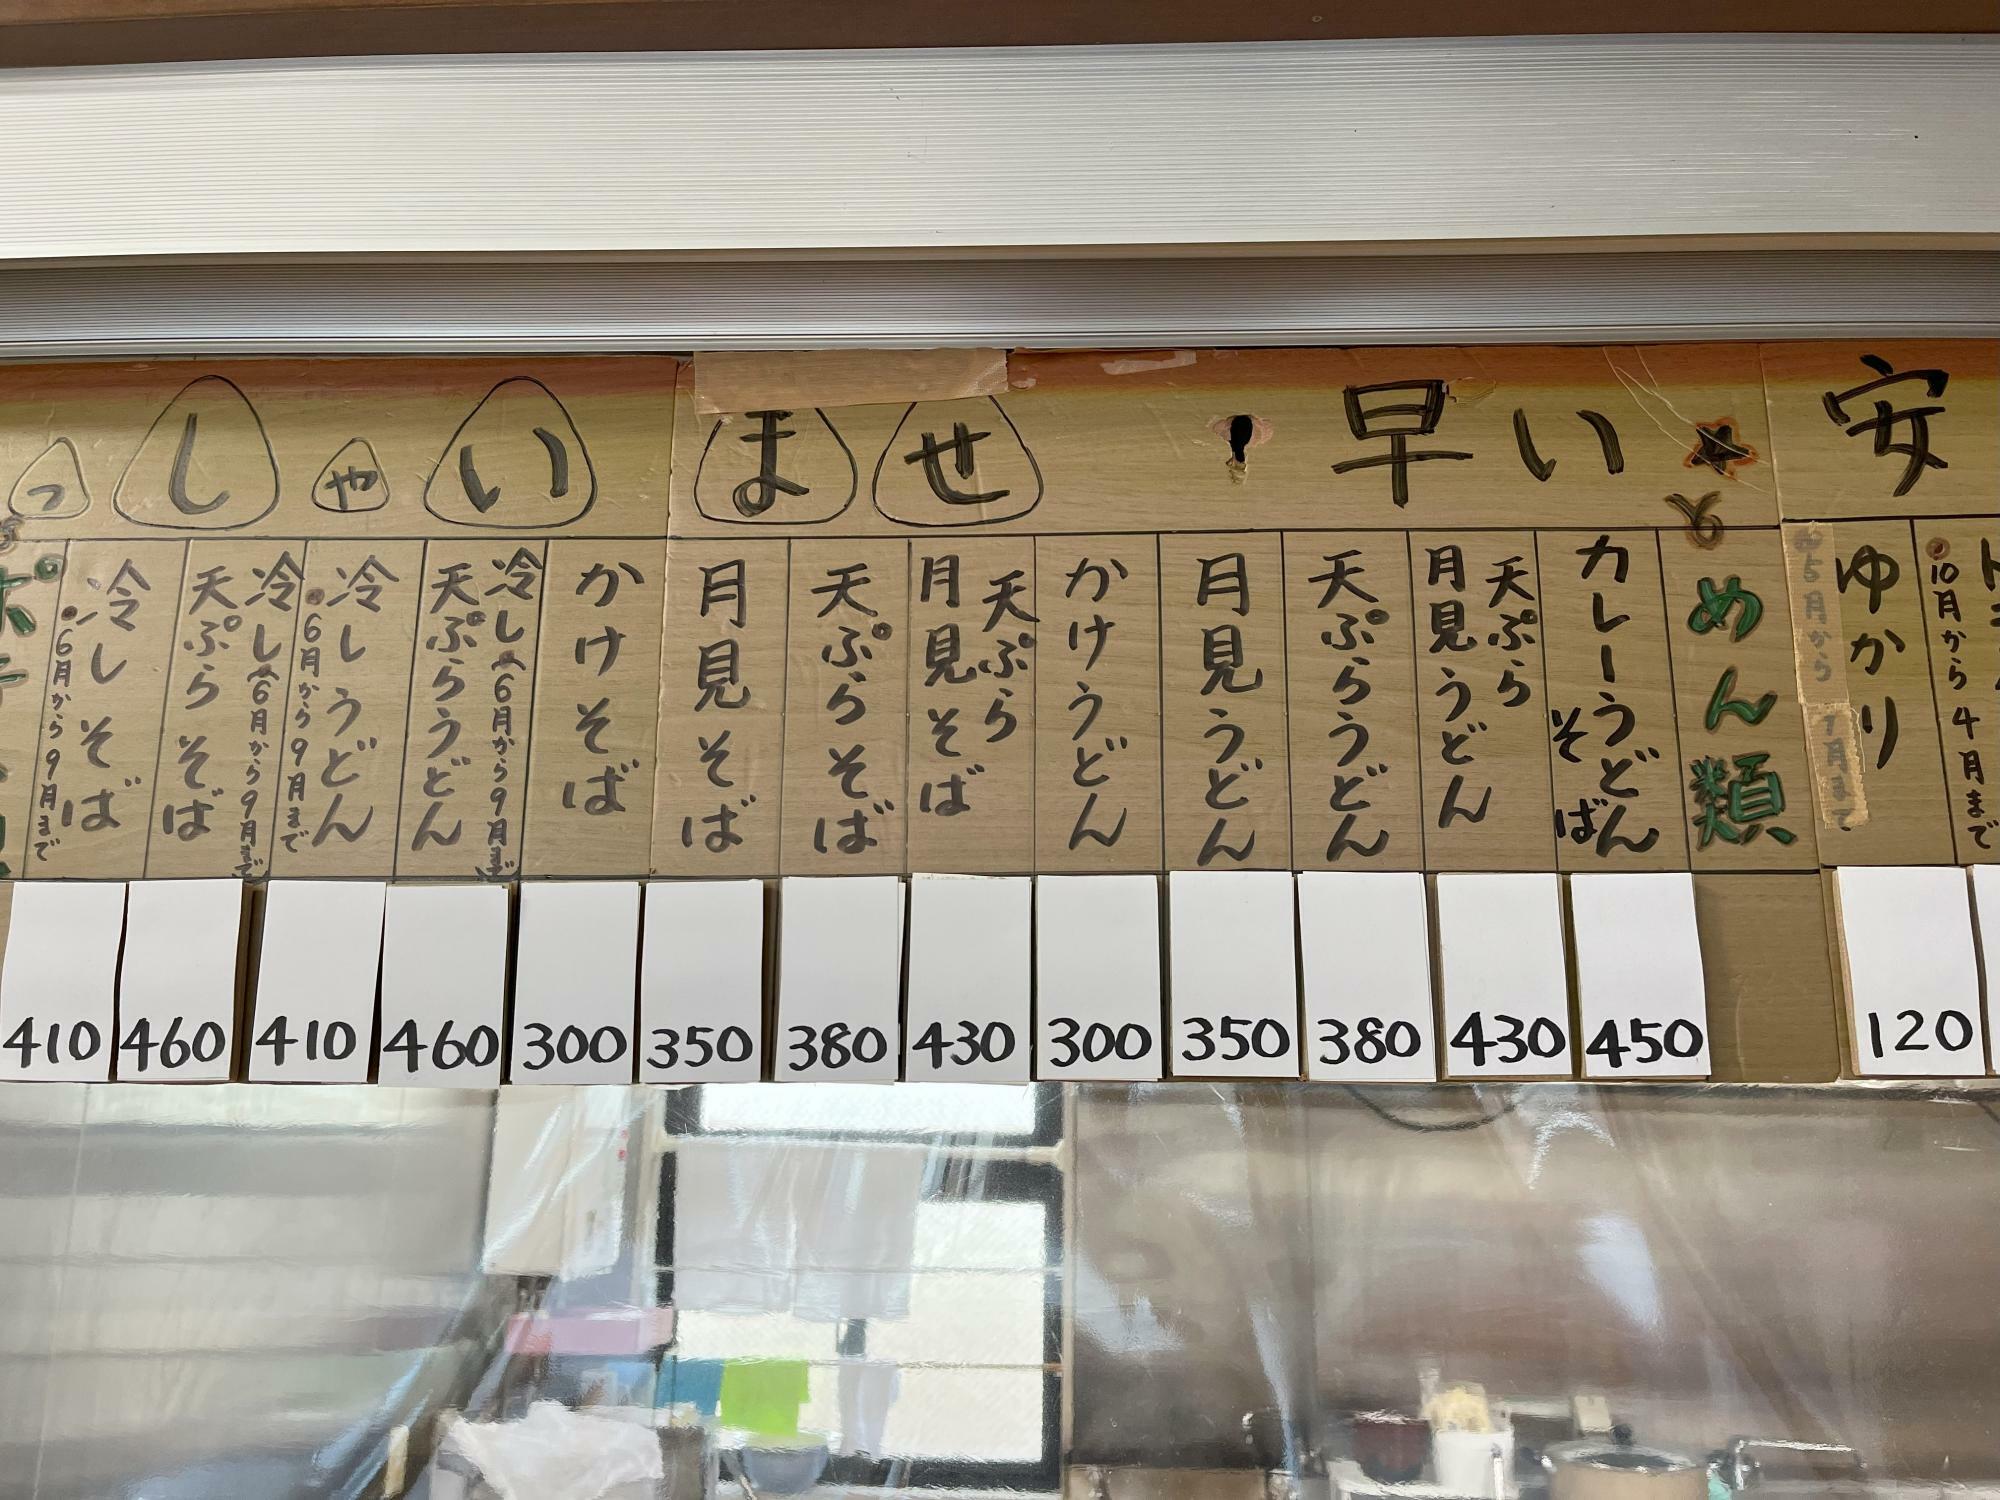 っしゃいませ
早い
安
10月から4月まで
ゆかり
5月から
7月まで
120
めん類
カレーうどん
そば
450
天ぷら
月見うどん
430
天ぷらうどん
380
月見うどん
350
かけうどん
300
天ぷら
月見そば
430
天ぷらそば
380
月見そば
350
かけそば
300
冷し(6月から9月まで)
天ぷらうどん
460
冷しうどん
6月から9月まで
410
冷し(6月から9月まで)
天ぷらそば
460
冷しそば
6月から9月まで
410